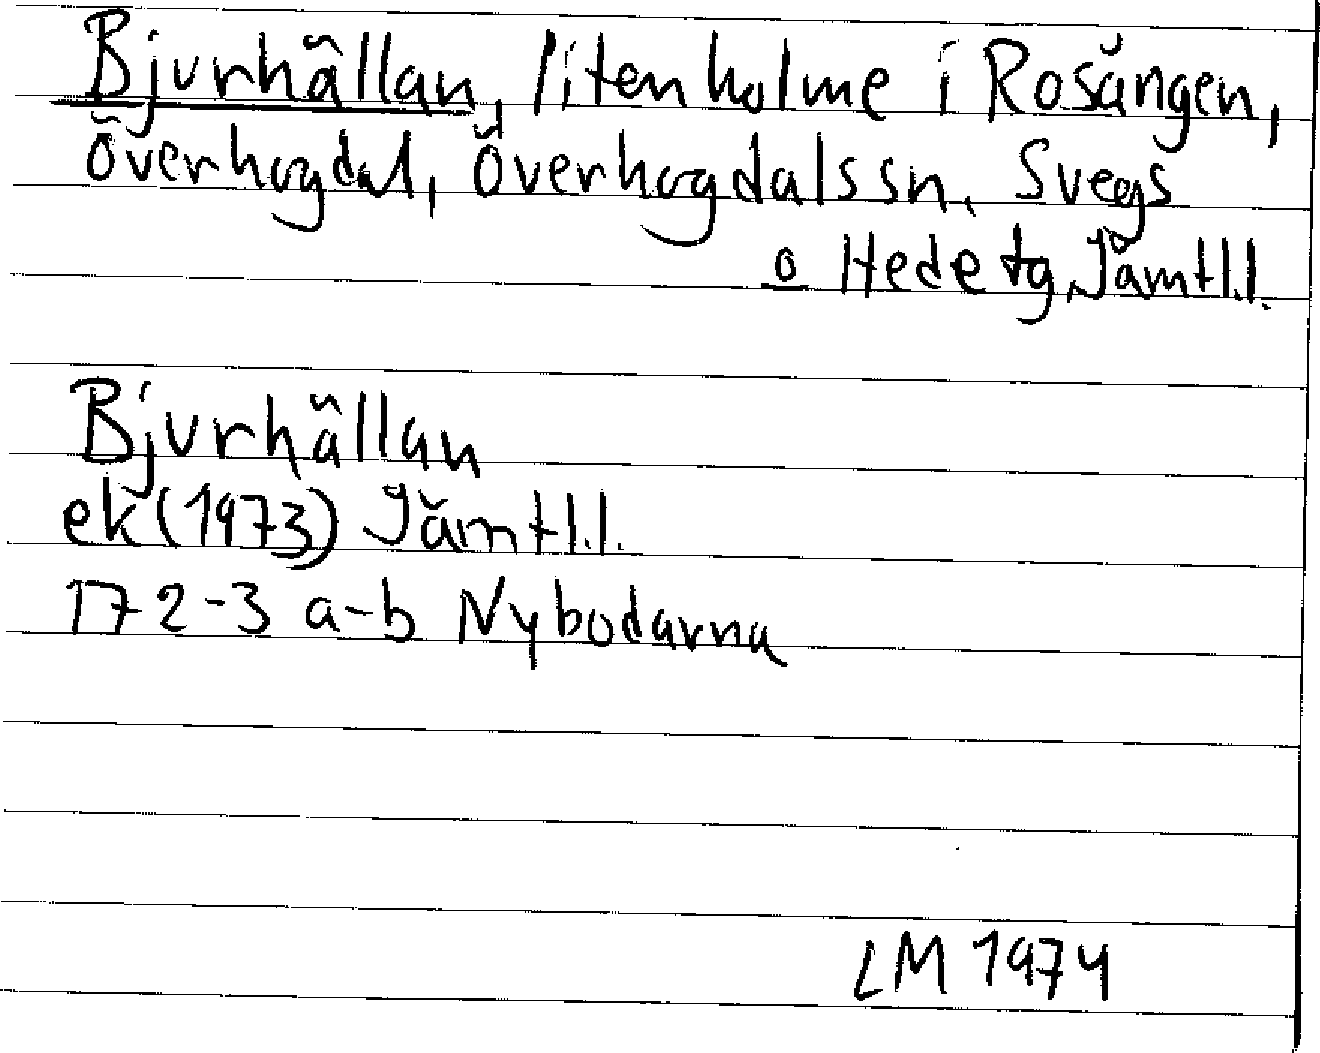 Bjurhällan, liten holme i Rosängen,
Överhogdal, Överhogdals sn, Svegs
o Hede tg, Jämtl.l.
Bjurhällan
ek (1973) Jämtl.l.
17 2-3 a-b Nybodarna
LM 1974